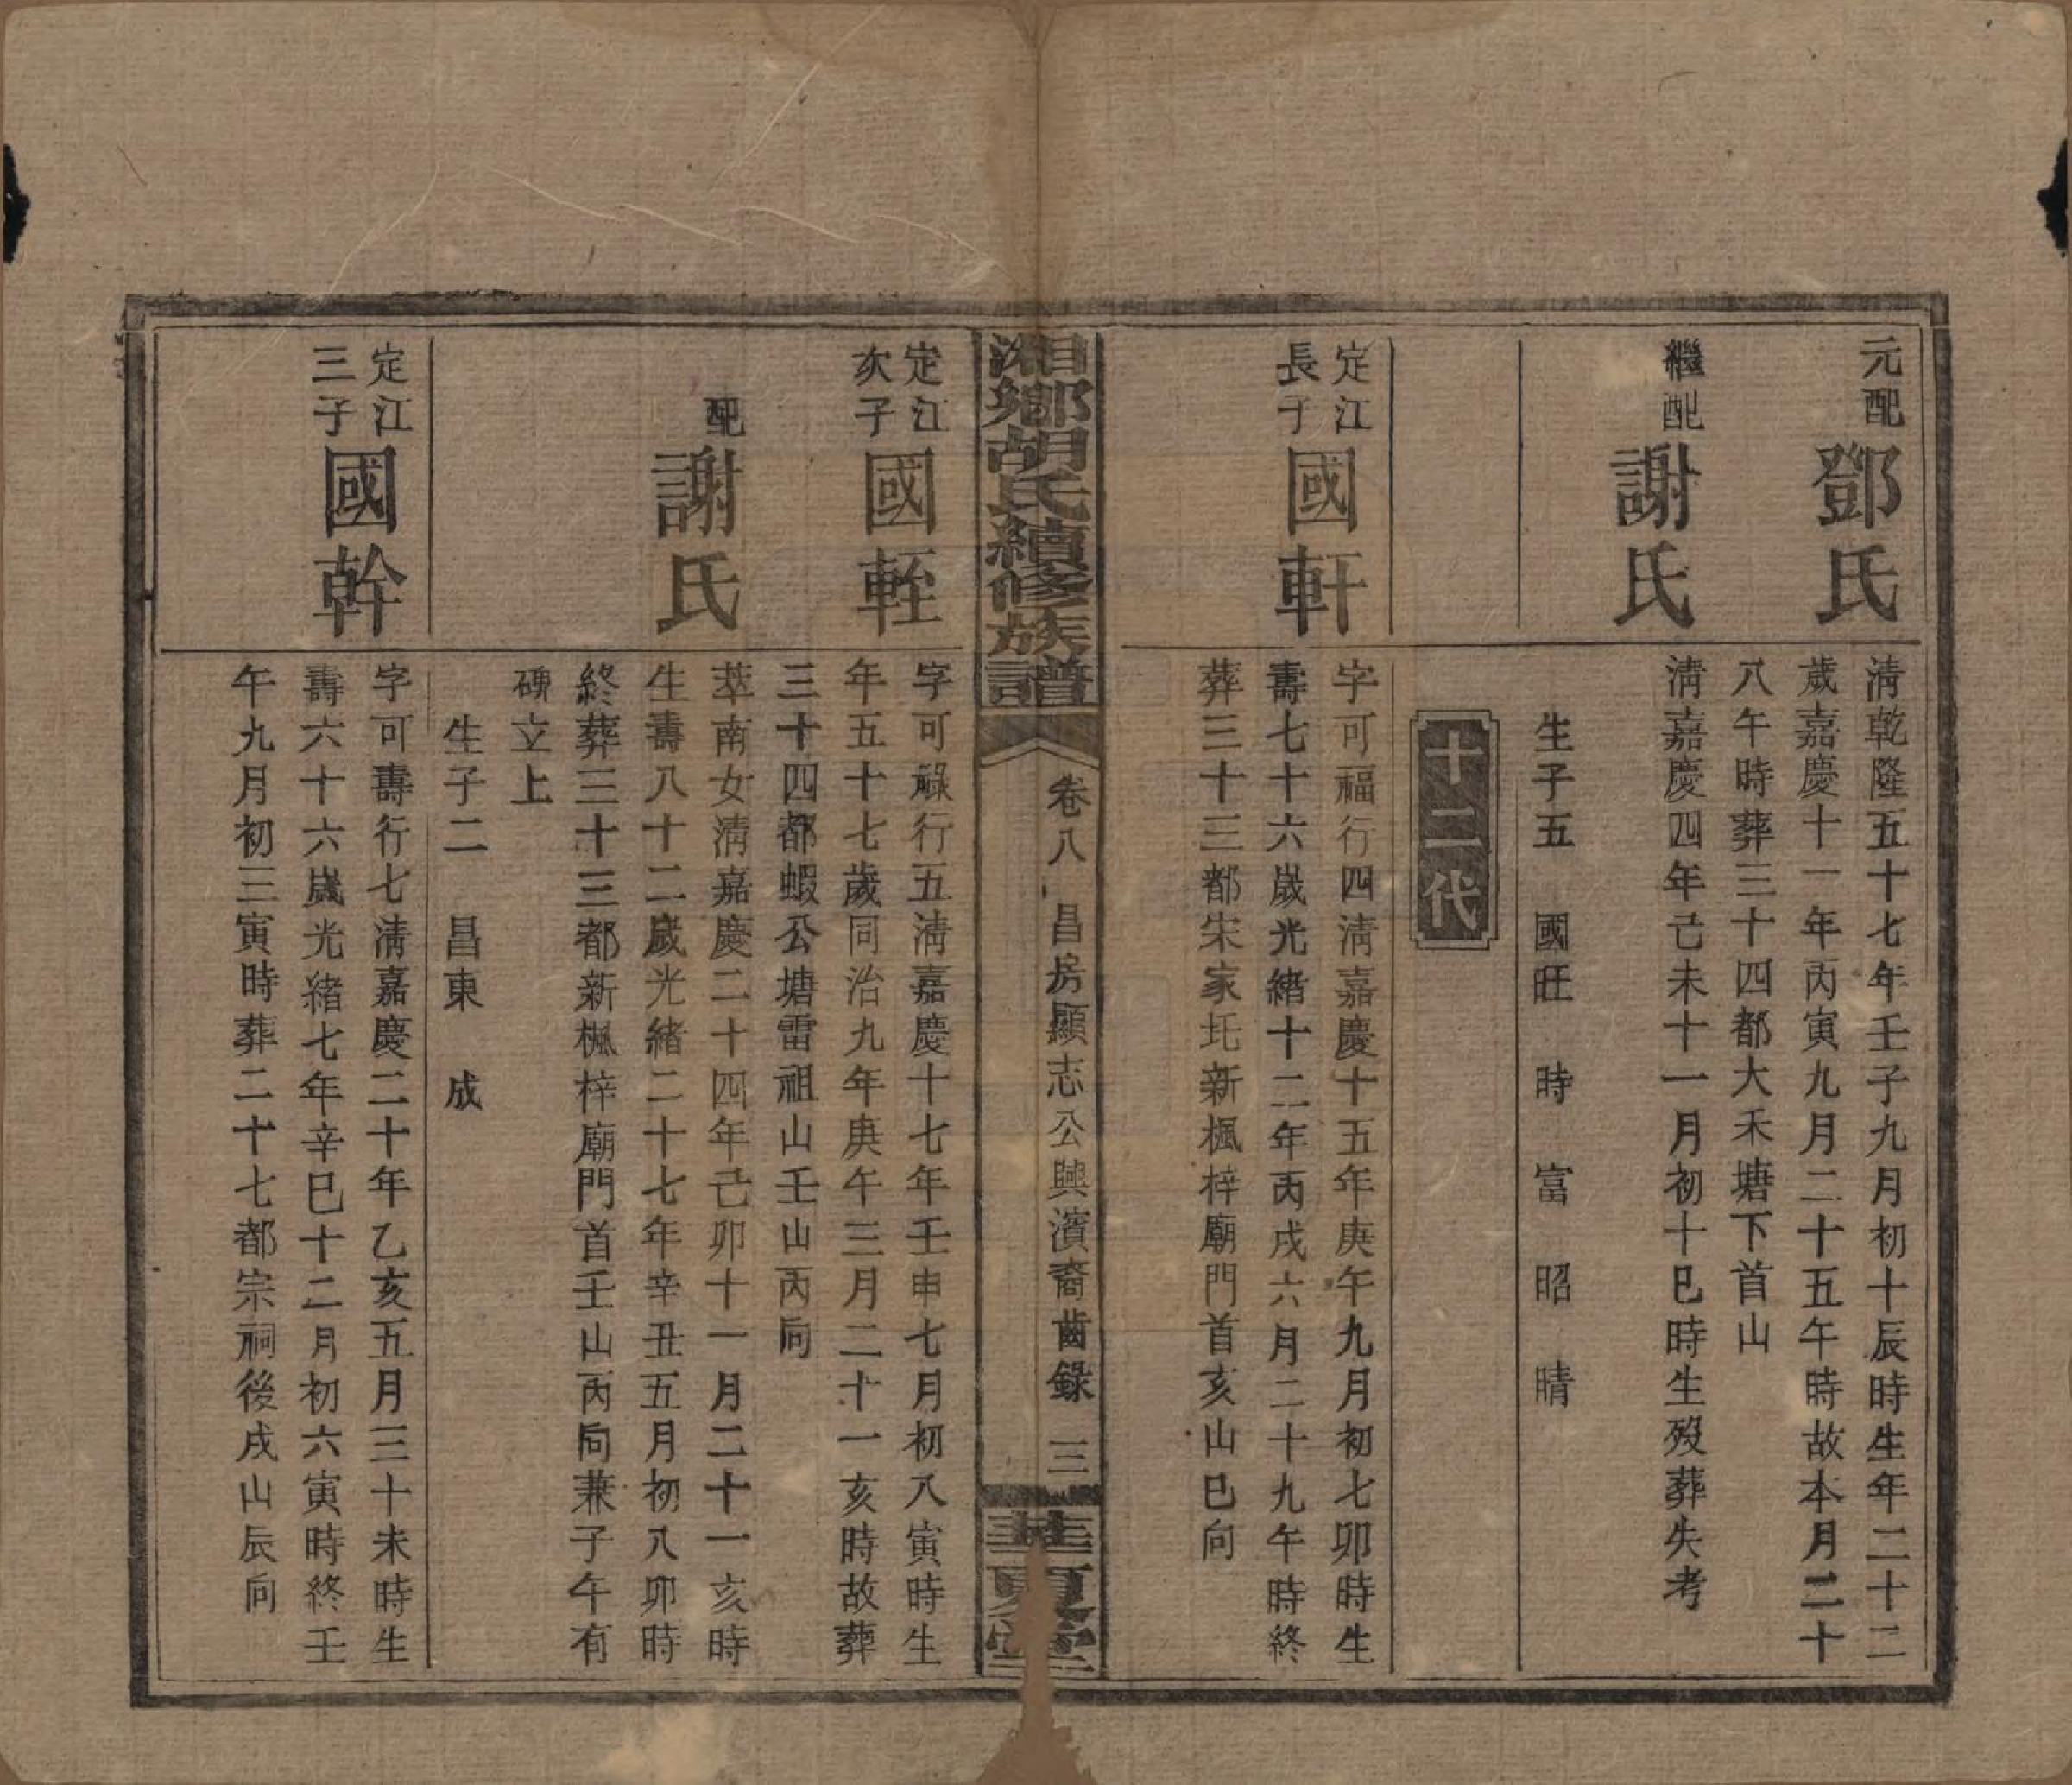 元配
鄧氏
清乾隆五十七年壬子九月初十辰時生年二十二
歲嘉慶十一年丙寅九月二十五午時故本月二十
八午時葬三十四都大禾塘下首山
繼配
謝氏
清嘉慶四年己未十一月初十巳時生歿葬失考
生子五　國旺　時　富　昭　晴
十二代
定江
長子
國軒
字可福行四清嘉慶十五年庚午九月初七卯時生
壽七十六歲光緒十二年丙戌六月二十九午時終
葬三十三都宋家坵新楓梓廟門首亥山巳向
湘鄉胡氏續修族譜
卷八　昌房顯志公興濱裔齒錄　三
華夏堂
定江
次子
國輊
字可祿行五清嘉慶十七年壬申七月初八寅時生
年五十七歲同治九年庚午三月二十一亥時故葬
三十四都蝦公塘雷祖山壬山丙向
配
謝氏
萃南女清嘉慶二十四年己卯十一月二十一亥時
生壽八十二歲光緒二十七年辛丑五月初八卯時
終葬三十三都新楓梓廟門首壬山丙向兼子午有
碑立上
生子二　昌東　成
定江
三子
國幹
字可壽行七清嘉慶二十年乙亥五月三十未時生
壽六十六歲光緒七年辛巳十二月初六寅時終壬
午九月初三寅時葬二十七都宗祠後戌山辰向